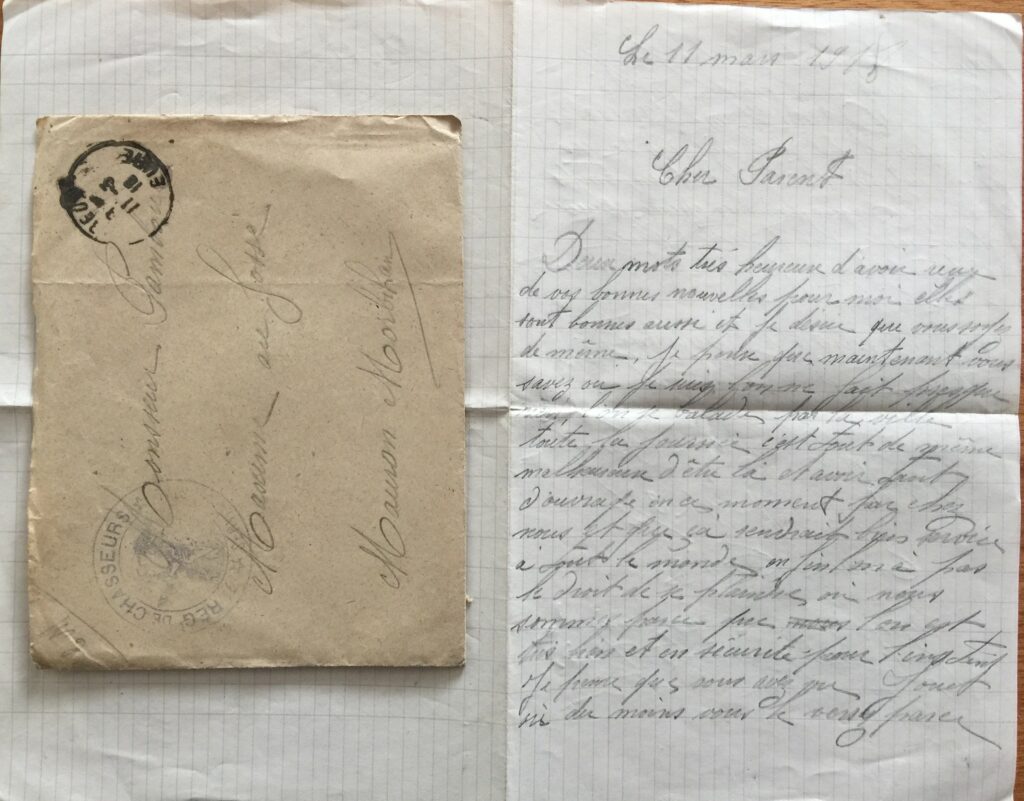 Le 11 mars 1918
Cher Parent
Deux mots très heureux d'avoir reçu
de vos bonnes nouvelles pour moi elles
sont bonnes aussi et je desire que vous soyez
de même, Je pense que maintenant vous
savez ou je suis l'on ne fait presque
rien l'on se balade par la ville
toute la journée c'est tout de même
malheureux d'être là et avoir tant
d'ouvrage en ce moment par chez
nous et que ça rendrait bien service
à tout le monde enfin n'a pas
le droit de se plaindre ou nous
sommes parce que l'on est
très bien et en sécurité pour l'instant
Je pense que vous avez vu
si du moins vous le verrez parce
Monsieur
Maxime au
Mauron Morbihan
EURE
11
18
REG. DE CHASSEURS